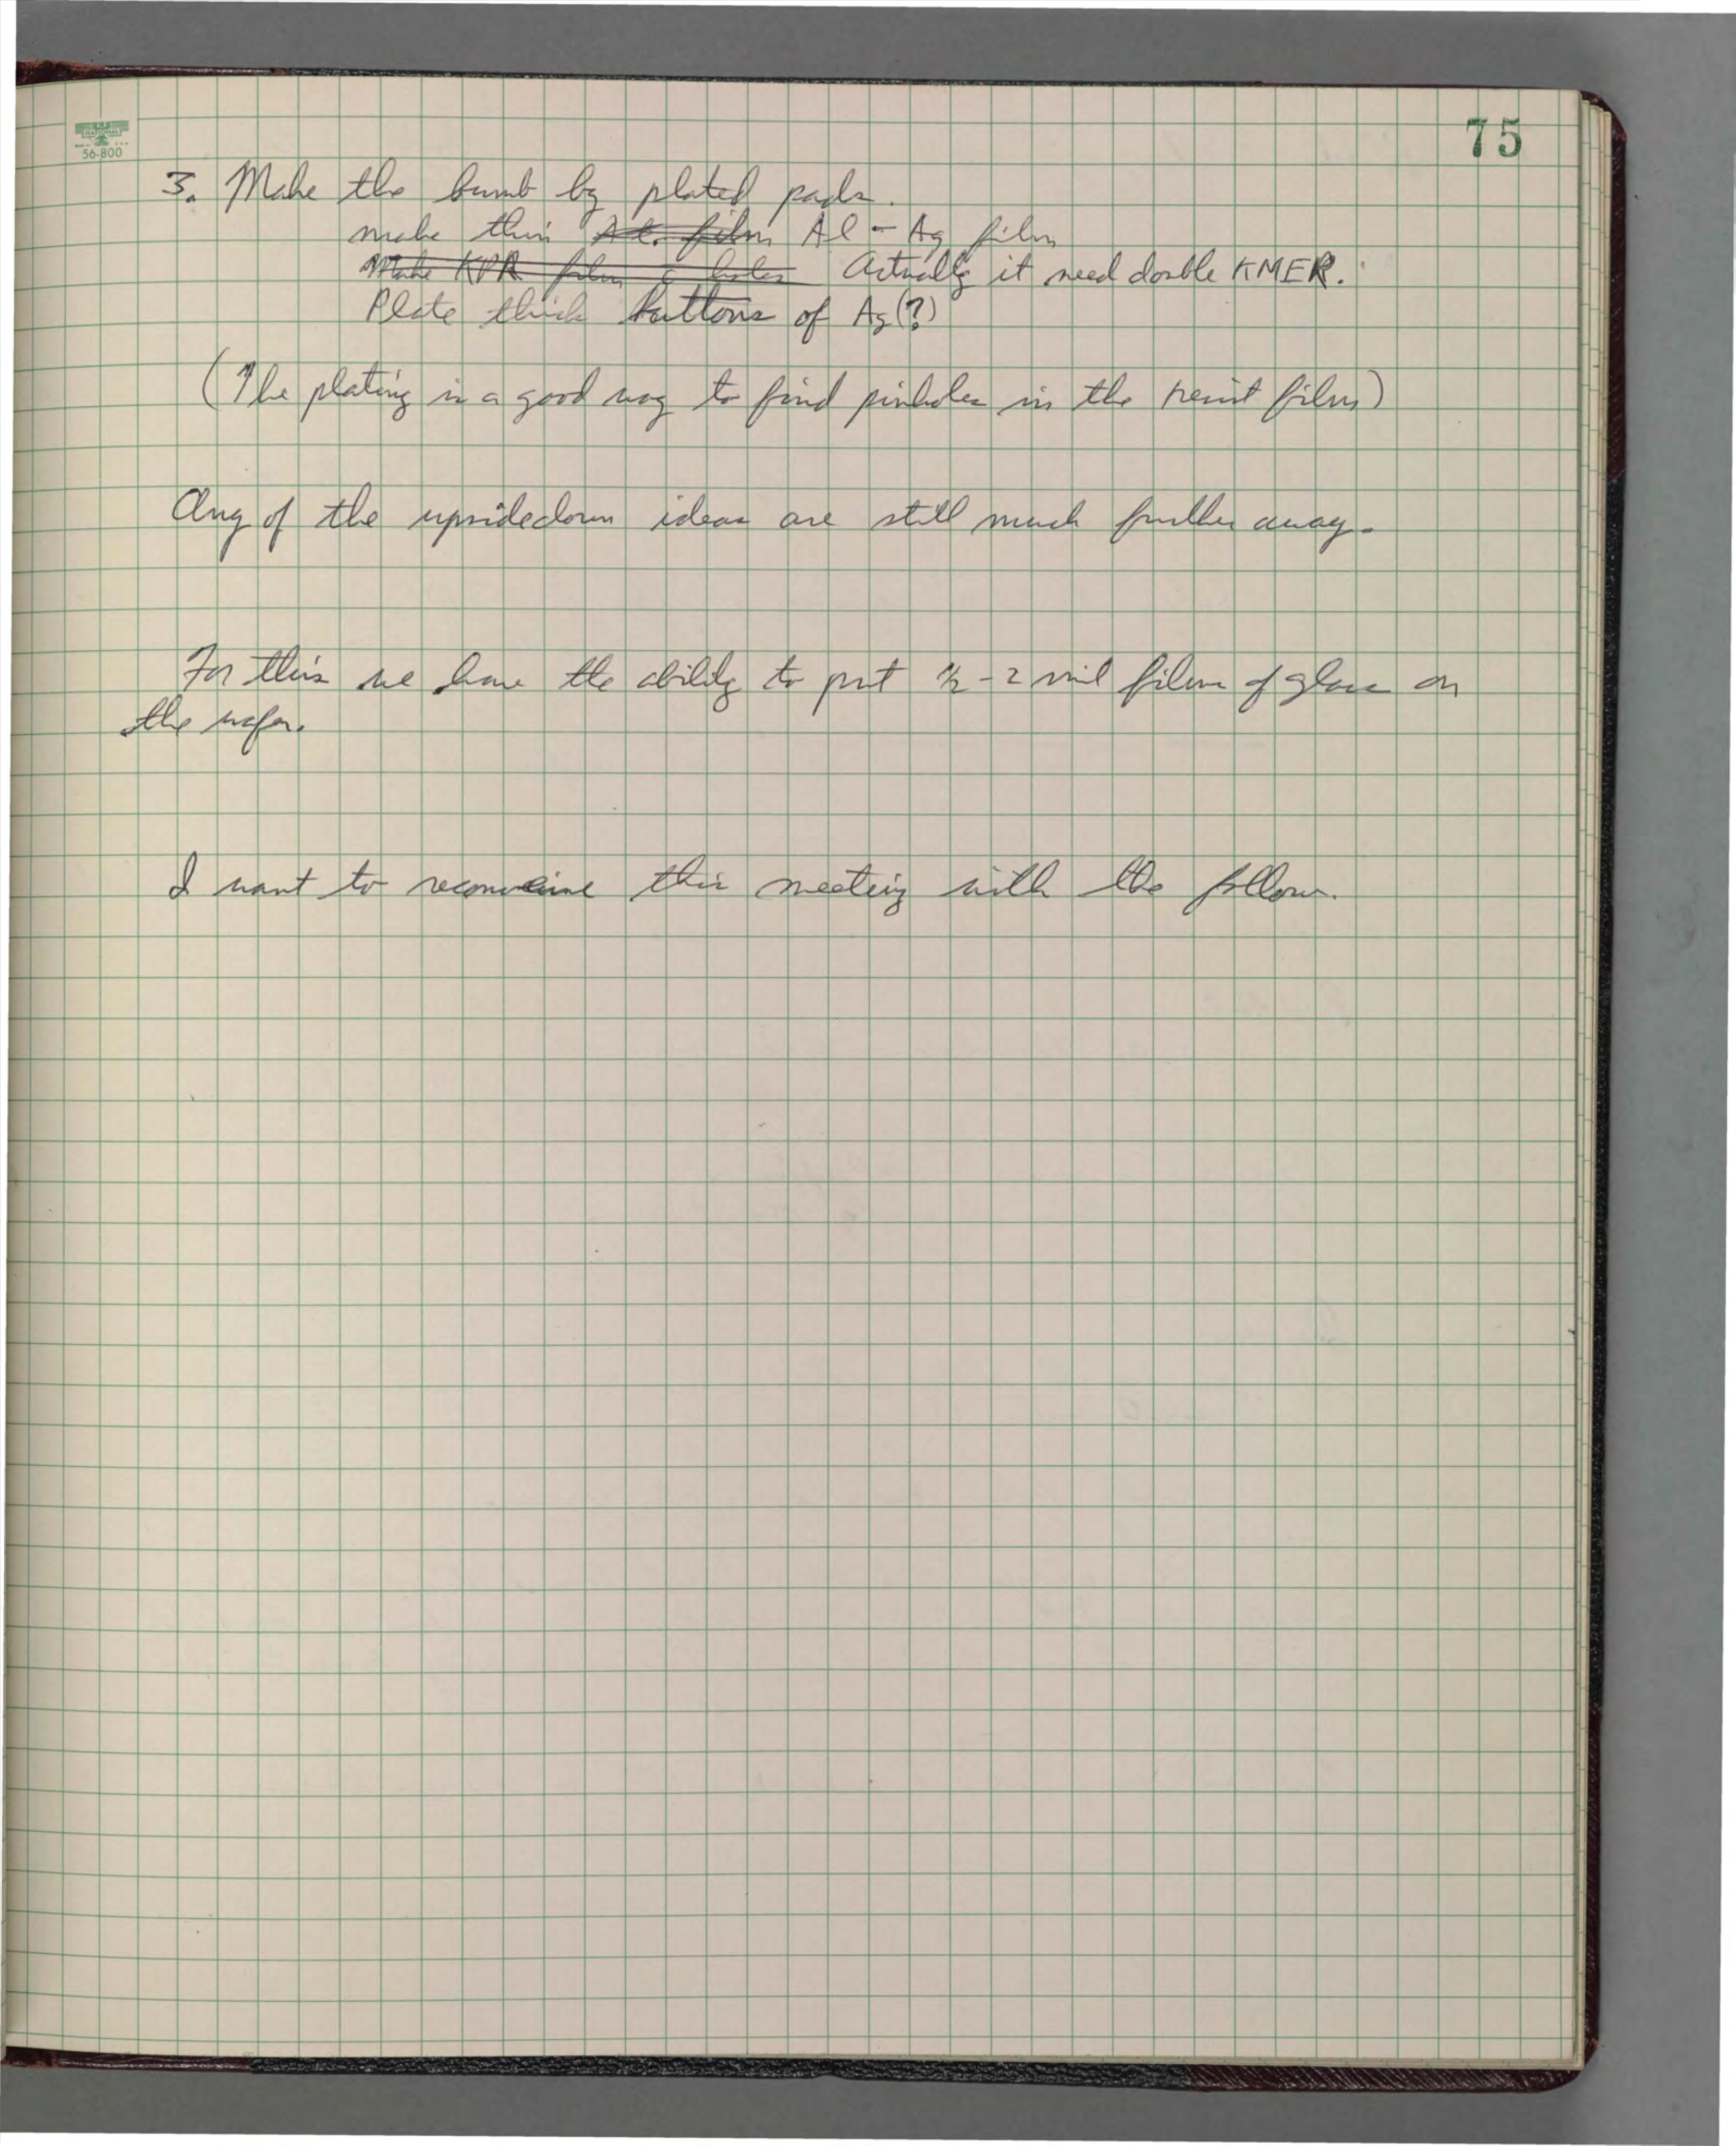 75
NATIONAL
56-800
3. Make the bumb by plated pads.
make thin Al. film Al - Ag film
Make KPR film c holes Actually it need double KMER.
Plate thick buttons of Ag(?)
(The plating is a good way to find pinholes in the resist film)
Any of the upsidedown ideas are still much further away.
For this we have the ability to put 1/2 - 2 mil films of glass on
the wafer.
I want to reconvene this meeting with the fellows.